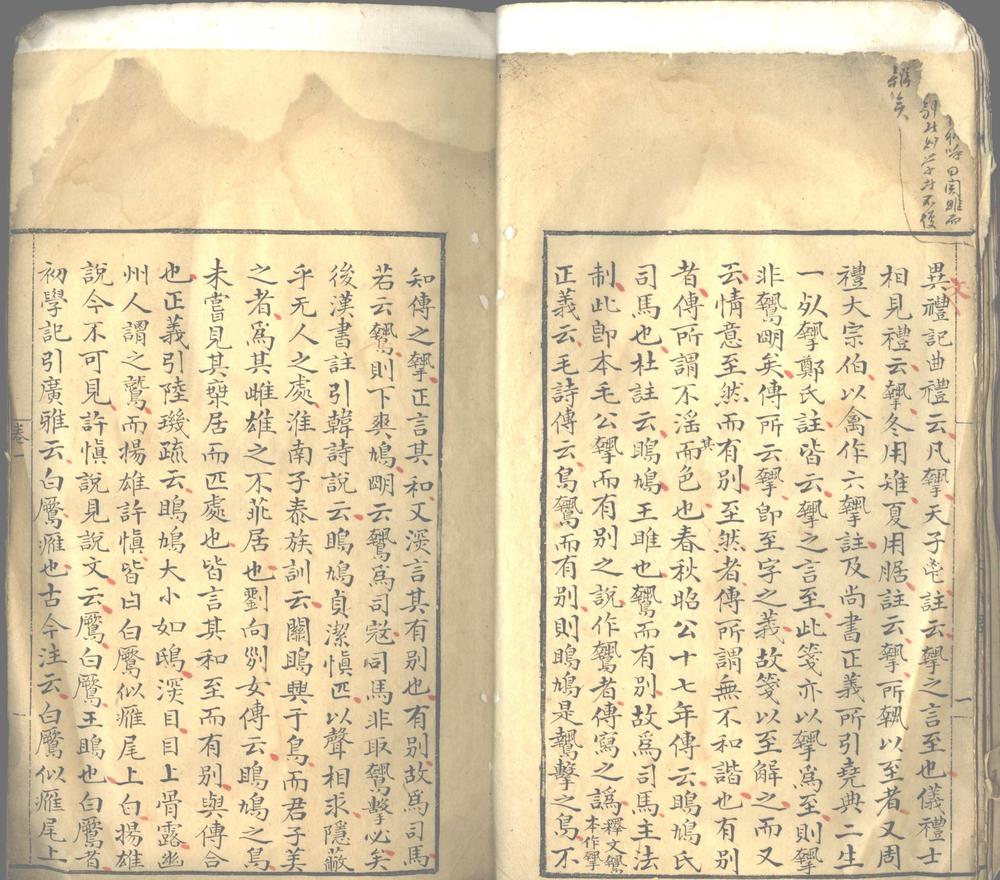 異禮記曲禮云凡摯天子鬯註云摯之言至也儀禮士
相見禮云摯冬用雉夏用腒註云摯所執以至者又周
禮大宗伯以禽作六摯註及尚書正義所引堯典二生
一死摯鄭氏註皆云摯之言至此箋亦以摯爲至則摯
非鷙明矣傳所云摯卽至字之義故箋以至解之而又
云情意至然而有別至然者傳所謂無不和諧也有別
者傳所謂不淫其而色也春秋昭公十七年傳云鴡鳩氏
司馬也杜註云鴡鳩王雎也鷙而有別故爲司馬主法
制此卽本毛公摯而有別之說作鷙者傳寫之譌釋文鷙本作摯
正義云毛詩傳云鳥鷙而有別則鴡鳩是鷙擊之鳥不
知傳之摯正言其和又深言其有别也有别故爲司馬
若云鷙則下爽鳩明云鷙爲司寇司馬非取鷙擊必矣
後漢書註引韓詩說云鴡鳩貞潔慎匹以聲相求隱蔽
乎无人之處淮南子泰族訓云關鴡興于鳥而君子美
之者爲其雌雄之不乖居也劉向列女傳云鴡鳩之鳥
未嘗見其乘居而匹處也皆言其和至而有別與傳合
也正義引陸璣疏云鴡鳩大小如鴟深目目上骨露幽
州人謂之鷲而揚雄許慎皆曰白鷢似鷹尾上白揚雄
說今不可見許慎說見說文云鷢白鷢王鴡也白鷢者
初學記引廣雅云白鷢鷹也古今注云白鷢似鷹尾上
卷一
一